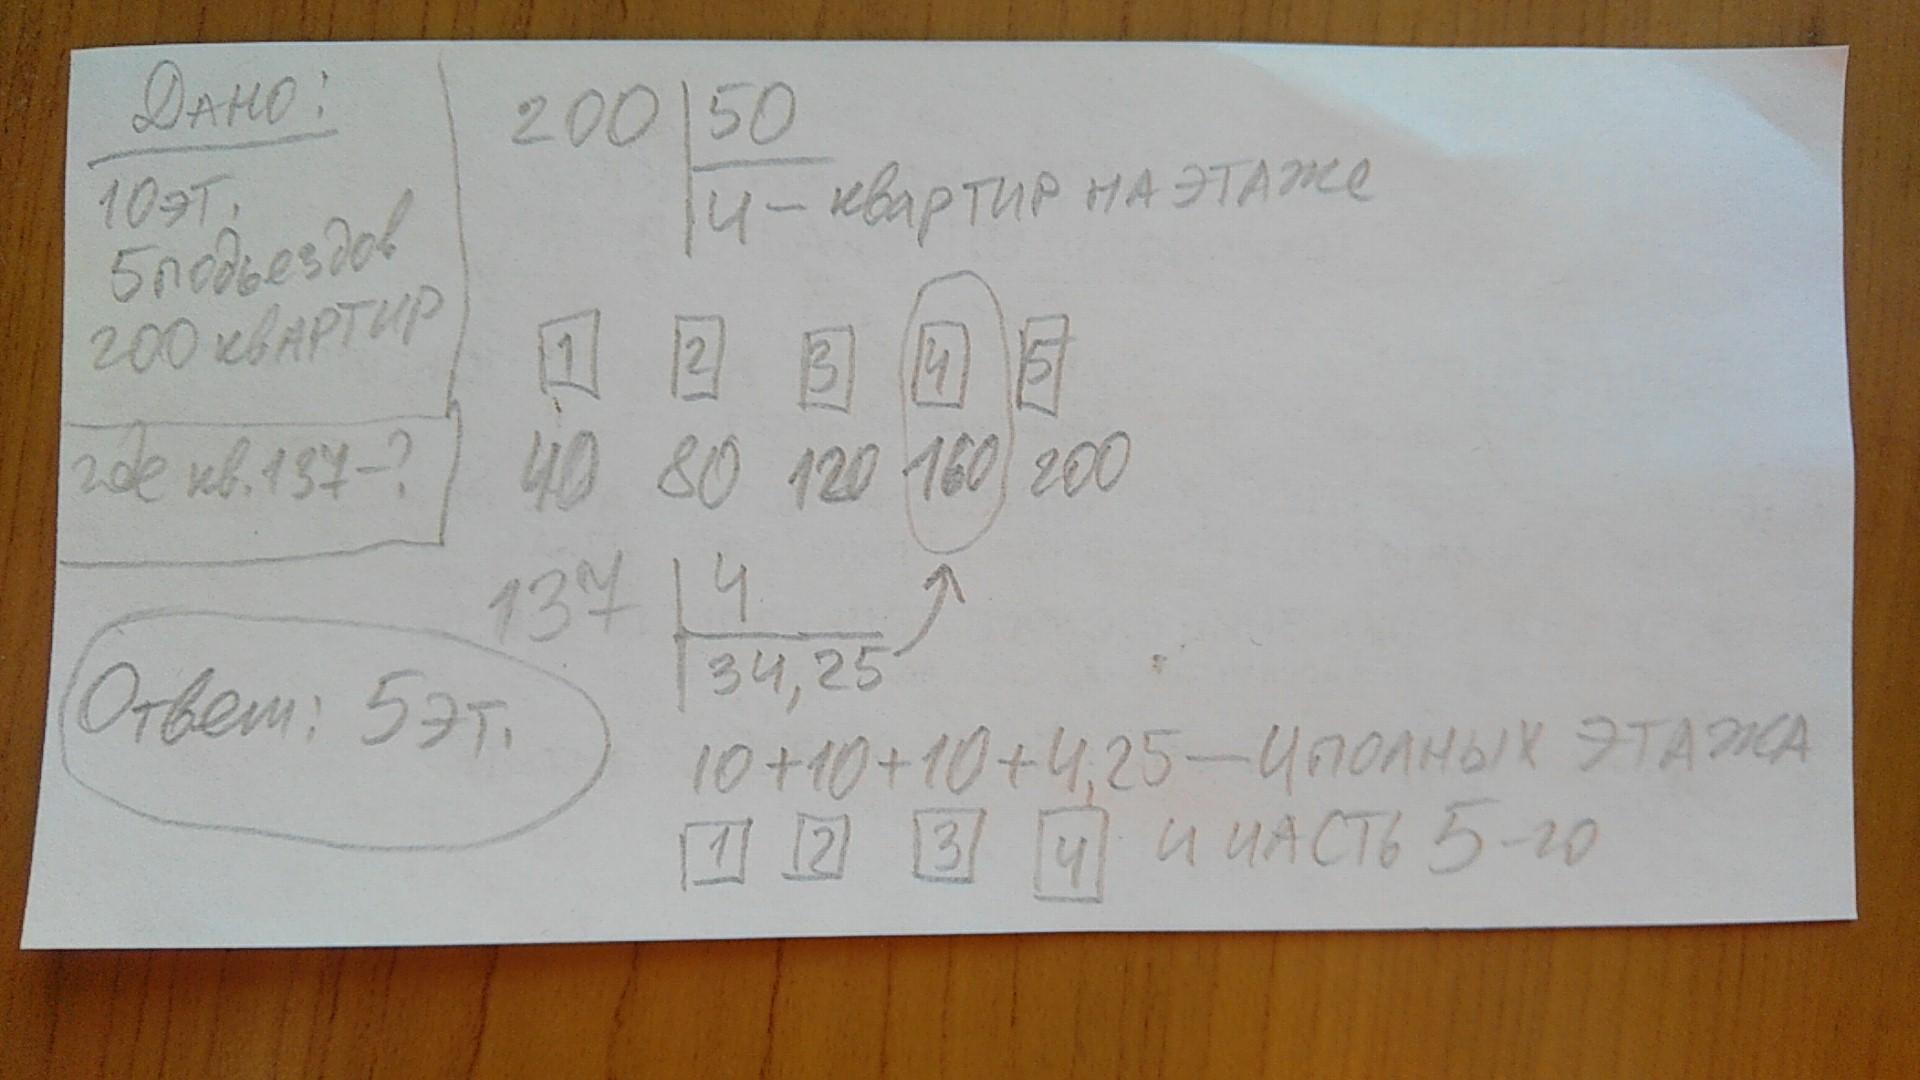 Дано:
10эт.
5подьездов
200 квартир
где кв.137-?
Ответ: 5эт.
200 50
4 - квартир на этаже
1 2 3 4 5
40 80 120 160 200
137 4
34,25
10+10+10+4,25 — 4 полных этажа
1 2 3 4 и часть 5-го